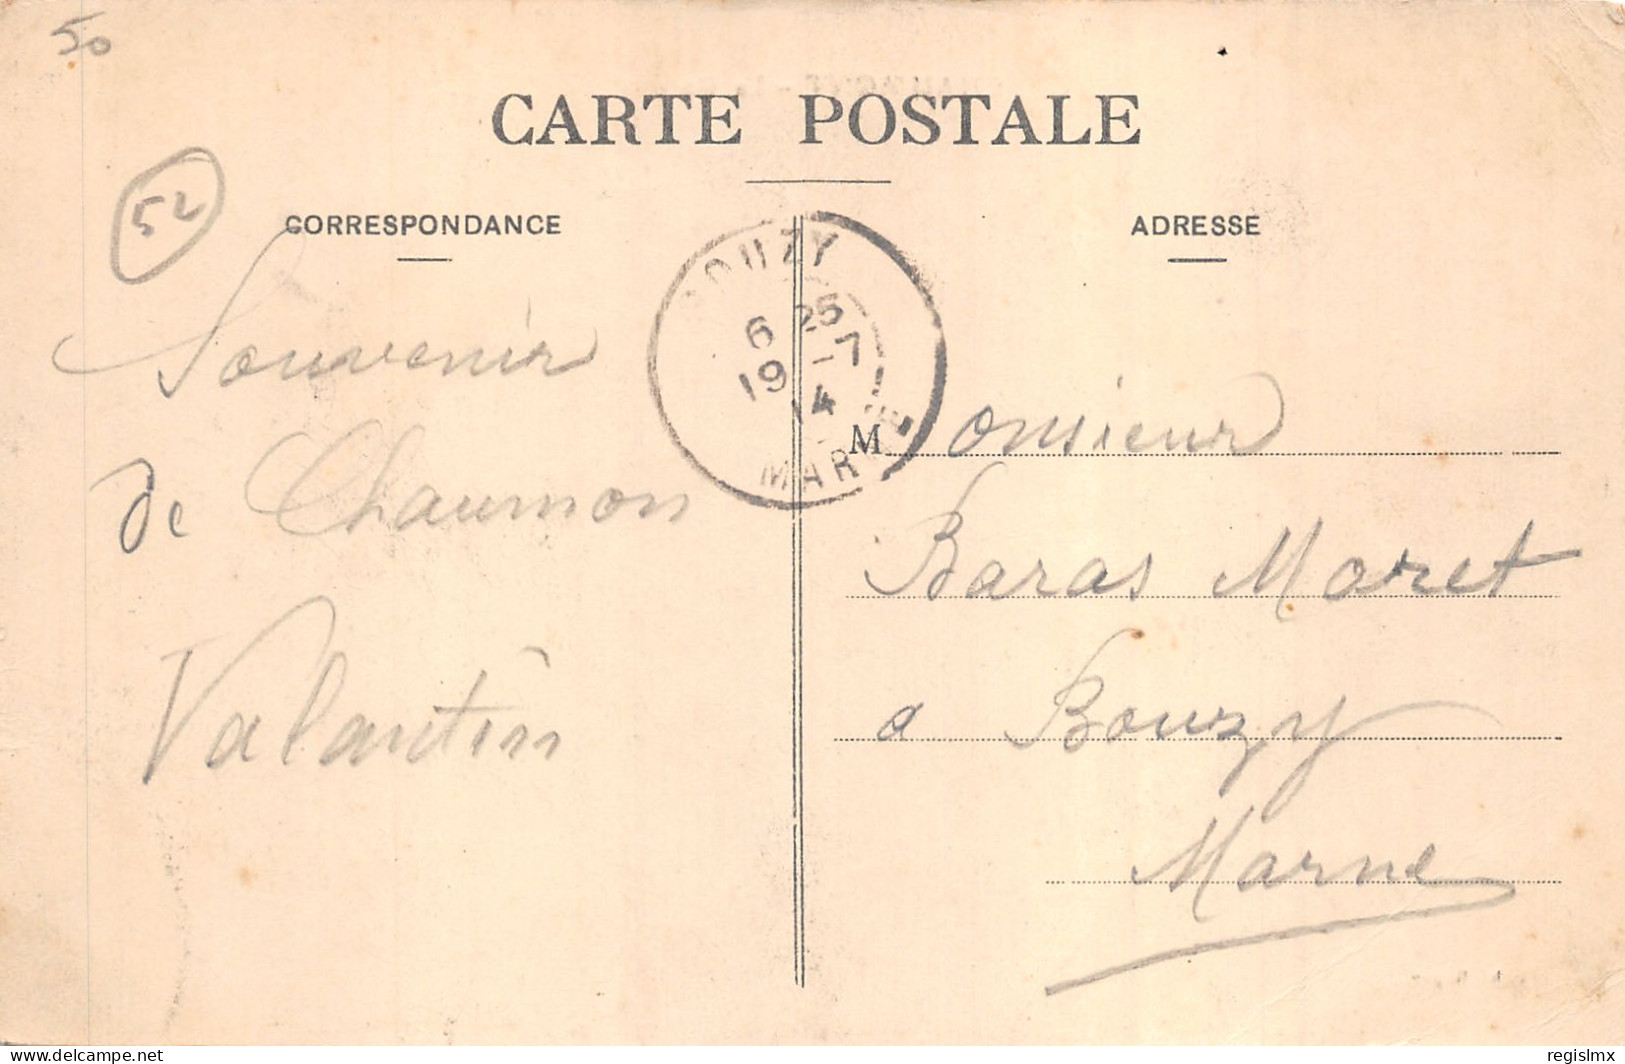 50
CARTE POSTALE
52
CORRESPONDANCE
ADRESSE
Souvenir
de Chaumon
Valantin
OUZY
6 25
19 -7
14
MARNE
Monsieur
Baras Moret
a Bouzy
Marne
delcampe.net
regislmx